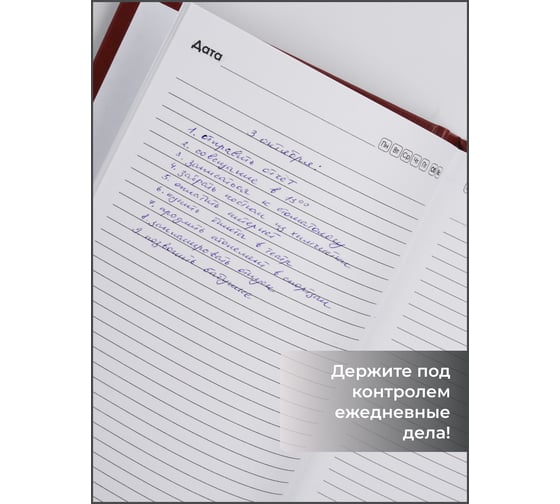 Дата
Пн Вт Ср Чт Пт Сб Вс
3 октября:
1. отправить отчёт
2. совещание в 13⁰⁰
3. записаться к стоматологу
4. забрать костюм из химчистки
5. оплатить интернет
6. купить билеты в театр
7. продлить абонемент в спортзал
8. запланировать отпуск
9. позвонить бабушке
Держите под
контролем
ежедневные
дела!